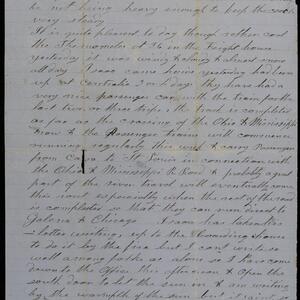 he not being heavy enough to keep the
very steady
It is quite pleasant to day though rather cool
the Thermometer at 36 in the freight house
yesterday it was raining & almost snow
all day I came home yesterday had been
up at Centralia 3 or 4 days they have had a
very nice passenger car on the train for the
last two or three trips the road is completed
as far as the crossing of the Ohio & Mississippi
Road & the Passenger trains will commence
running regularly this week & carry Passengers
from Cairo to St Louis in connection with
the Ohio & Mississippi R Road & probably a great
part of the river travel will eventually come
this route especially when the rest of the road
is completed so that they can run direct to
Galena & Chicago I now has taken this
letter writing, up to the Boarding House
to do it by the fire but I can't write so
well among folks as alone so I have come
down to the Office this afternoon & open the
south door to let the sun in & am writing
by the warmth of the sun